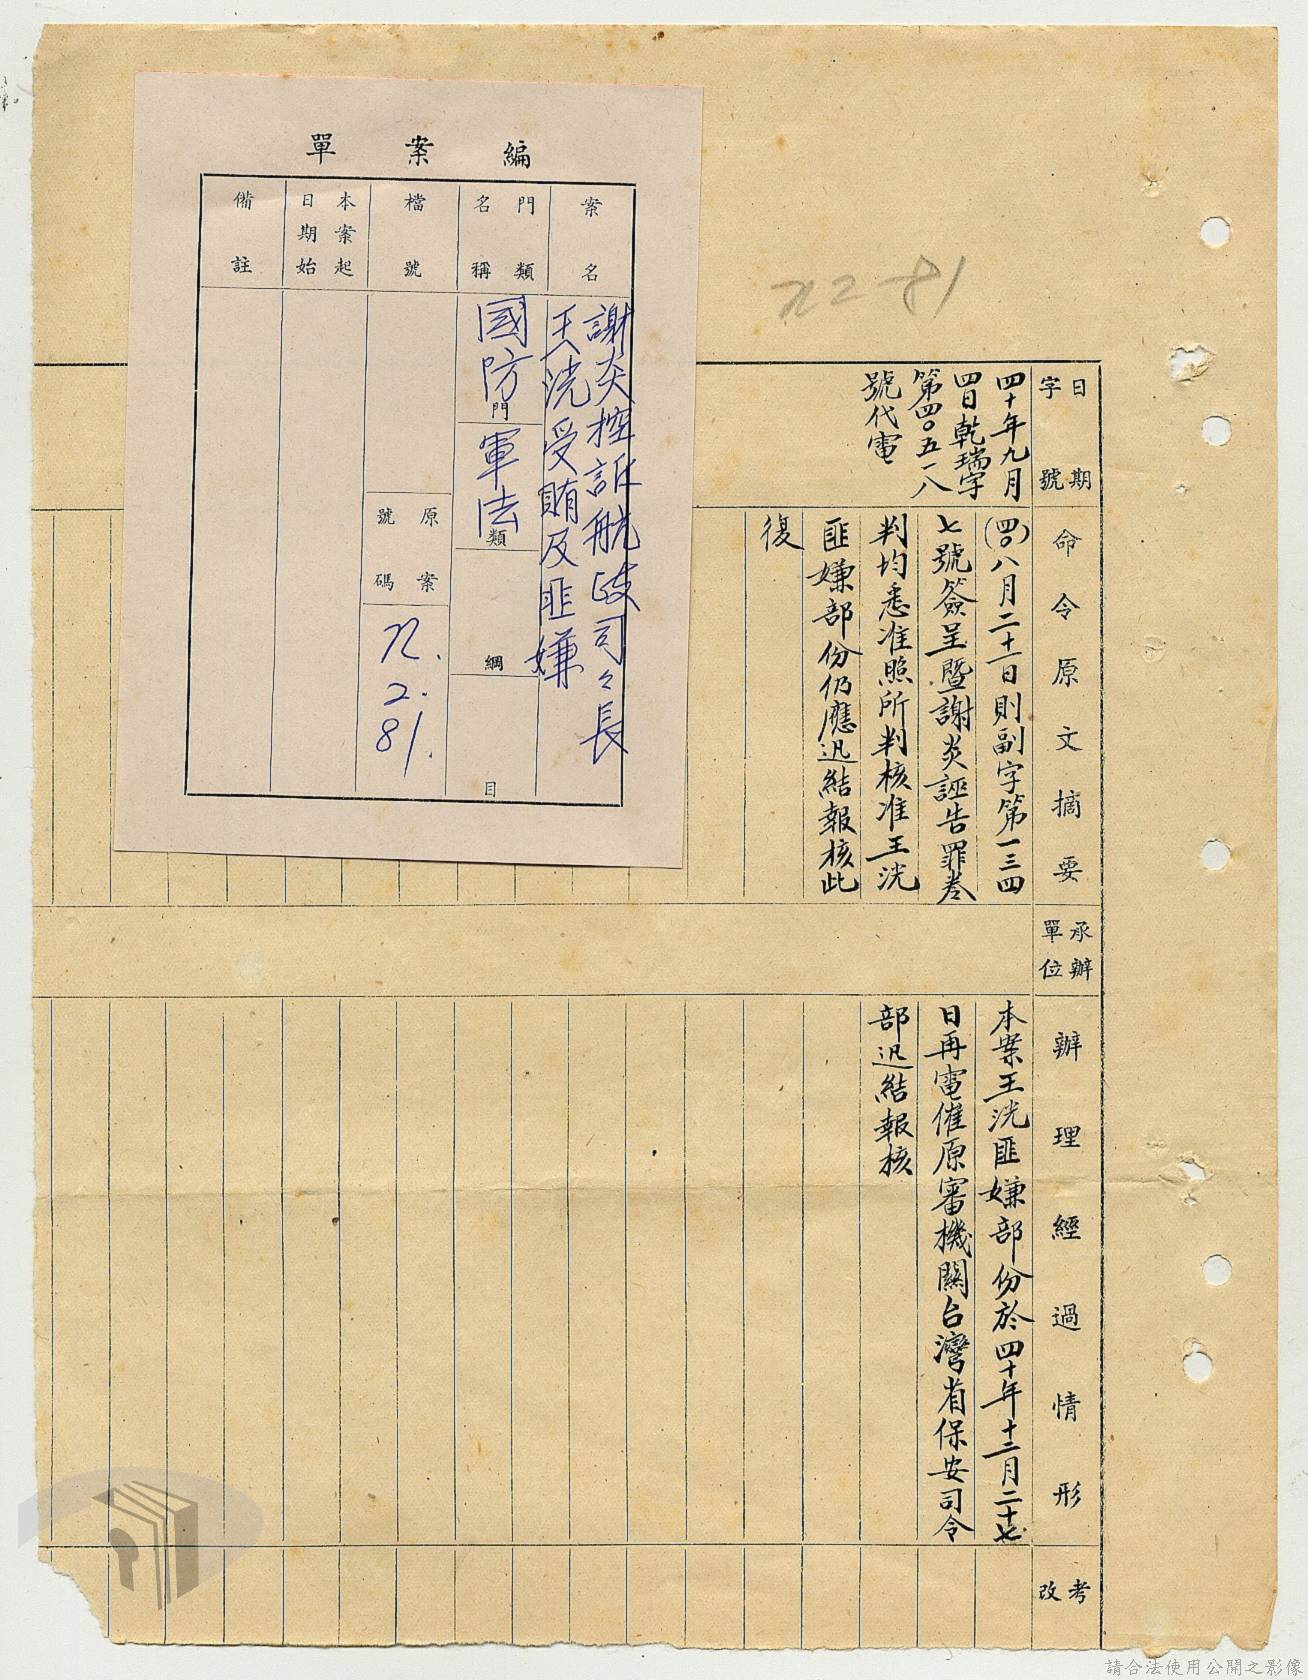 編案單
案名
謝炎控訴航政司々長
王洸受賄及匪嫌
門類名稱
國防門
軍法類
綱
目
檔號
原案號碼
72.2.81.
本案起日期始
備註
72-81
日期字號
四十年九月
四日乾瑞字
第四〇五一八
號代電
命令原文摘要
(四〇)八月二十一日則副字第一三四
七號簽呈暨謝炎誣告罪卷
判均悉准照所判核准王洸
匪嫌部份仍應迅結報核此
復
承辦單位
辦理經過情形
本案王洸匪嫌部份於四十年十二月二十七
日再電催原審機關台灣省保安司令
部迅結報核
考改
請合法使用公開之影像